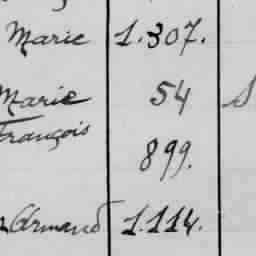 Marie 1.307.
Marie 54
François
899.
Armand 1.114.